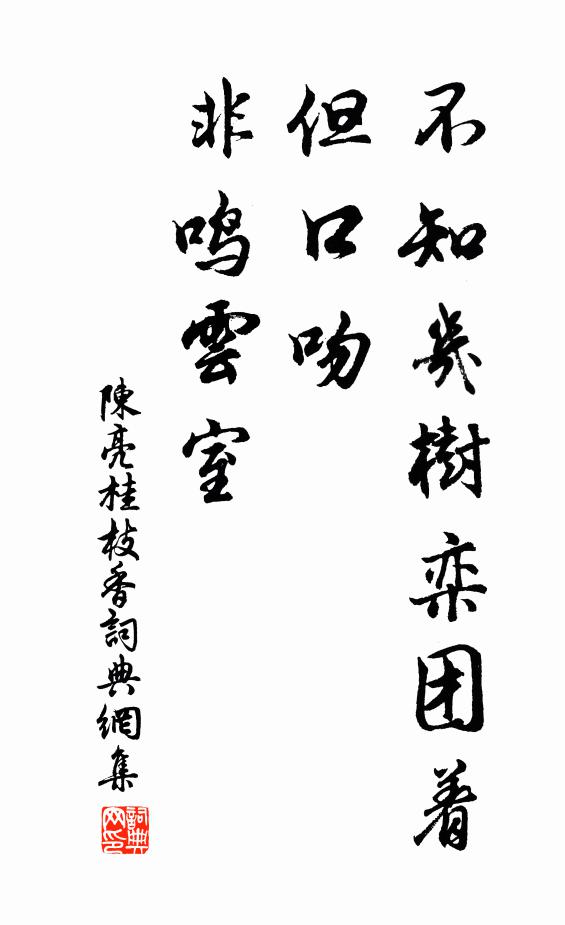 不知幾樹栾团着
但口吻
非鸣雲室
陳亮桂枝香詞典網集
詞典网印